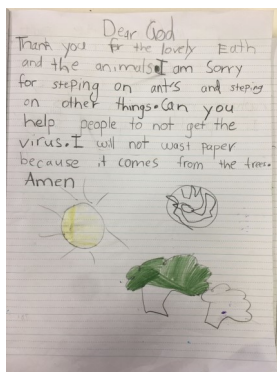 Dear God
Thank you for the lovely Eath
and the animals.I am Sorry
for steping on ants and steping
on other things.Can you
help people to not get the
virus.I will not wast paper
because it comes from the trees.
Amen